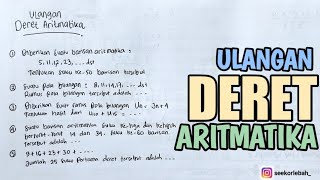 Ulangan
Deret Aritmatika
① Diberikan suatu barisan aritmatika :
5, 11, 17, 23, ... dst
Tentukan suku ke-50 barisan tersebut
② Suatu pola bilangan : 8, 11, 14, 17, ... dst
Rumus pola bilangan tersebut adalah ...
③ Diberikan luar rumus pola bilangan Un = 3n + 4
Tentukan hasil dari
④ Suatu barisan aritmatika suku ketiga dan ketujuh
berturut-turut 14 dan 34. suku ke-60 barisan
tersebut adalah ...
⑤ 9 + 16 + 23 + 30 + ...
Jumlah 25 suku pertama deret tersebut adalah ...
ULANGAN
DERET
ARITMATIKA
seekorlebah_